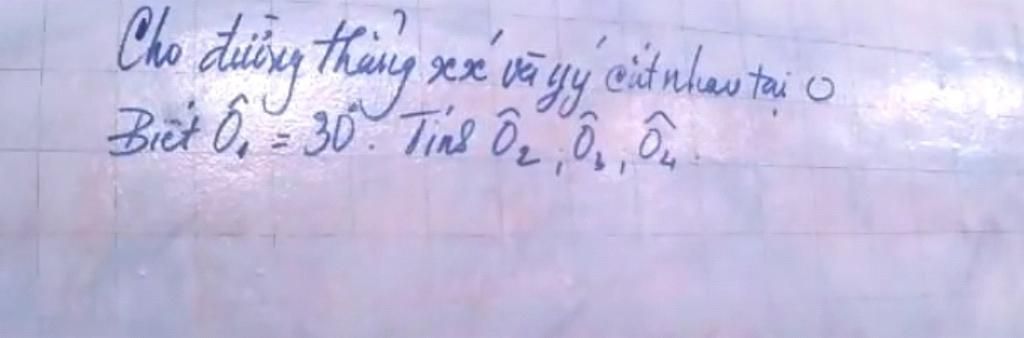 Cho đường thẳng xx' và yy' cắt nhau tại O
Biết Ô₁ = 30°. Tính Ô₂, Ô₃, Ô₄.